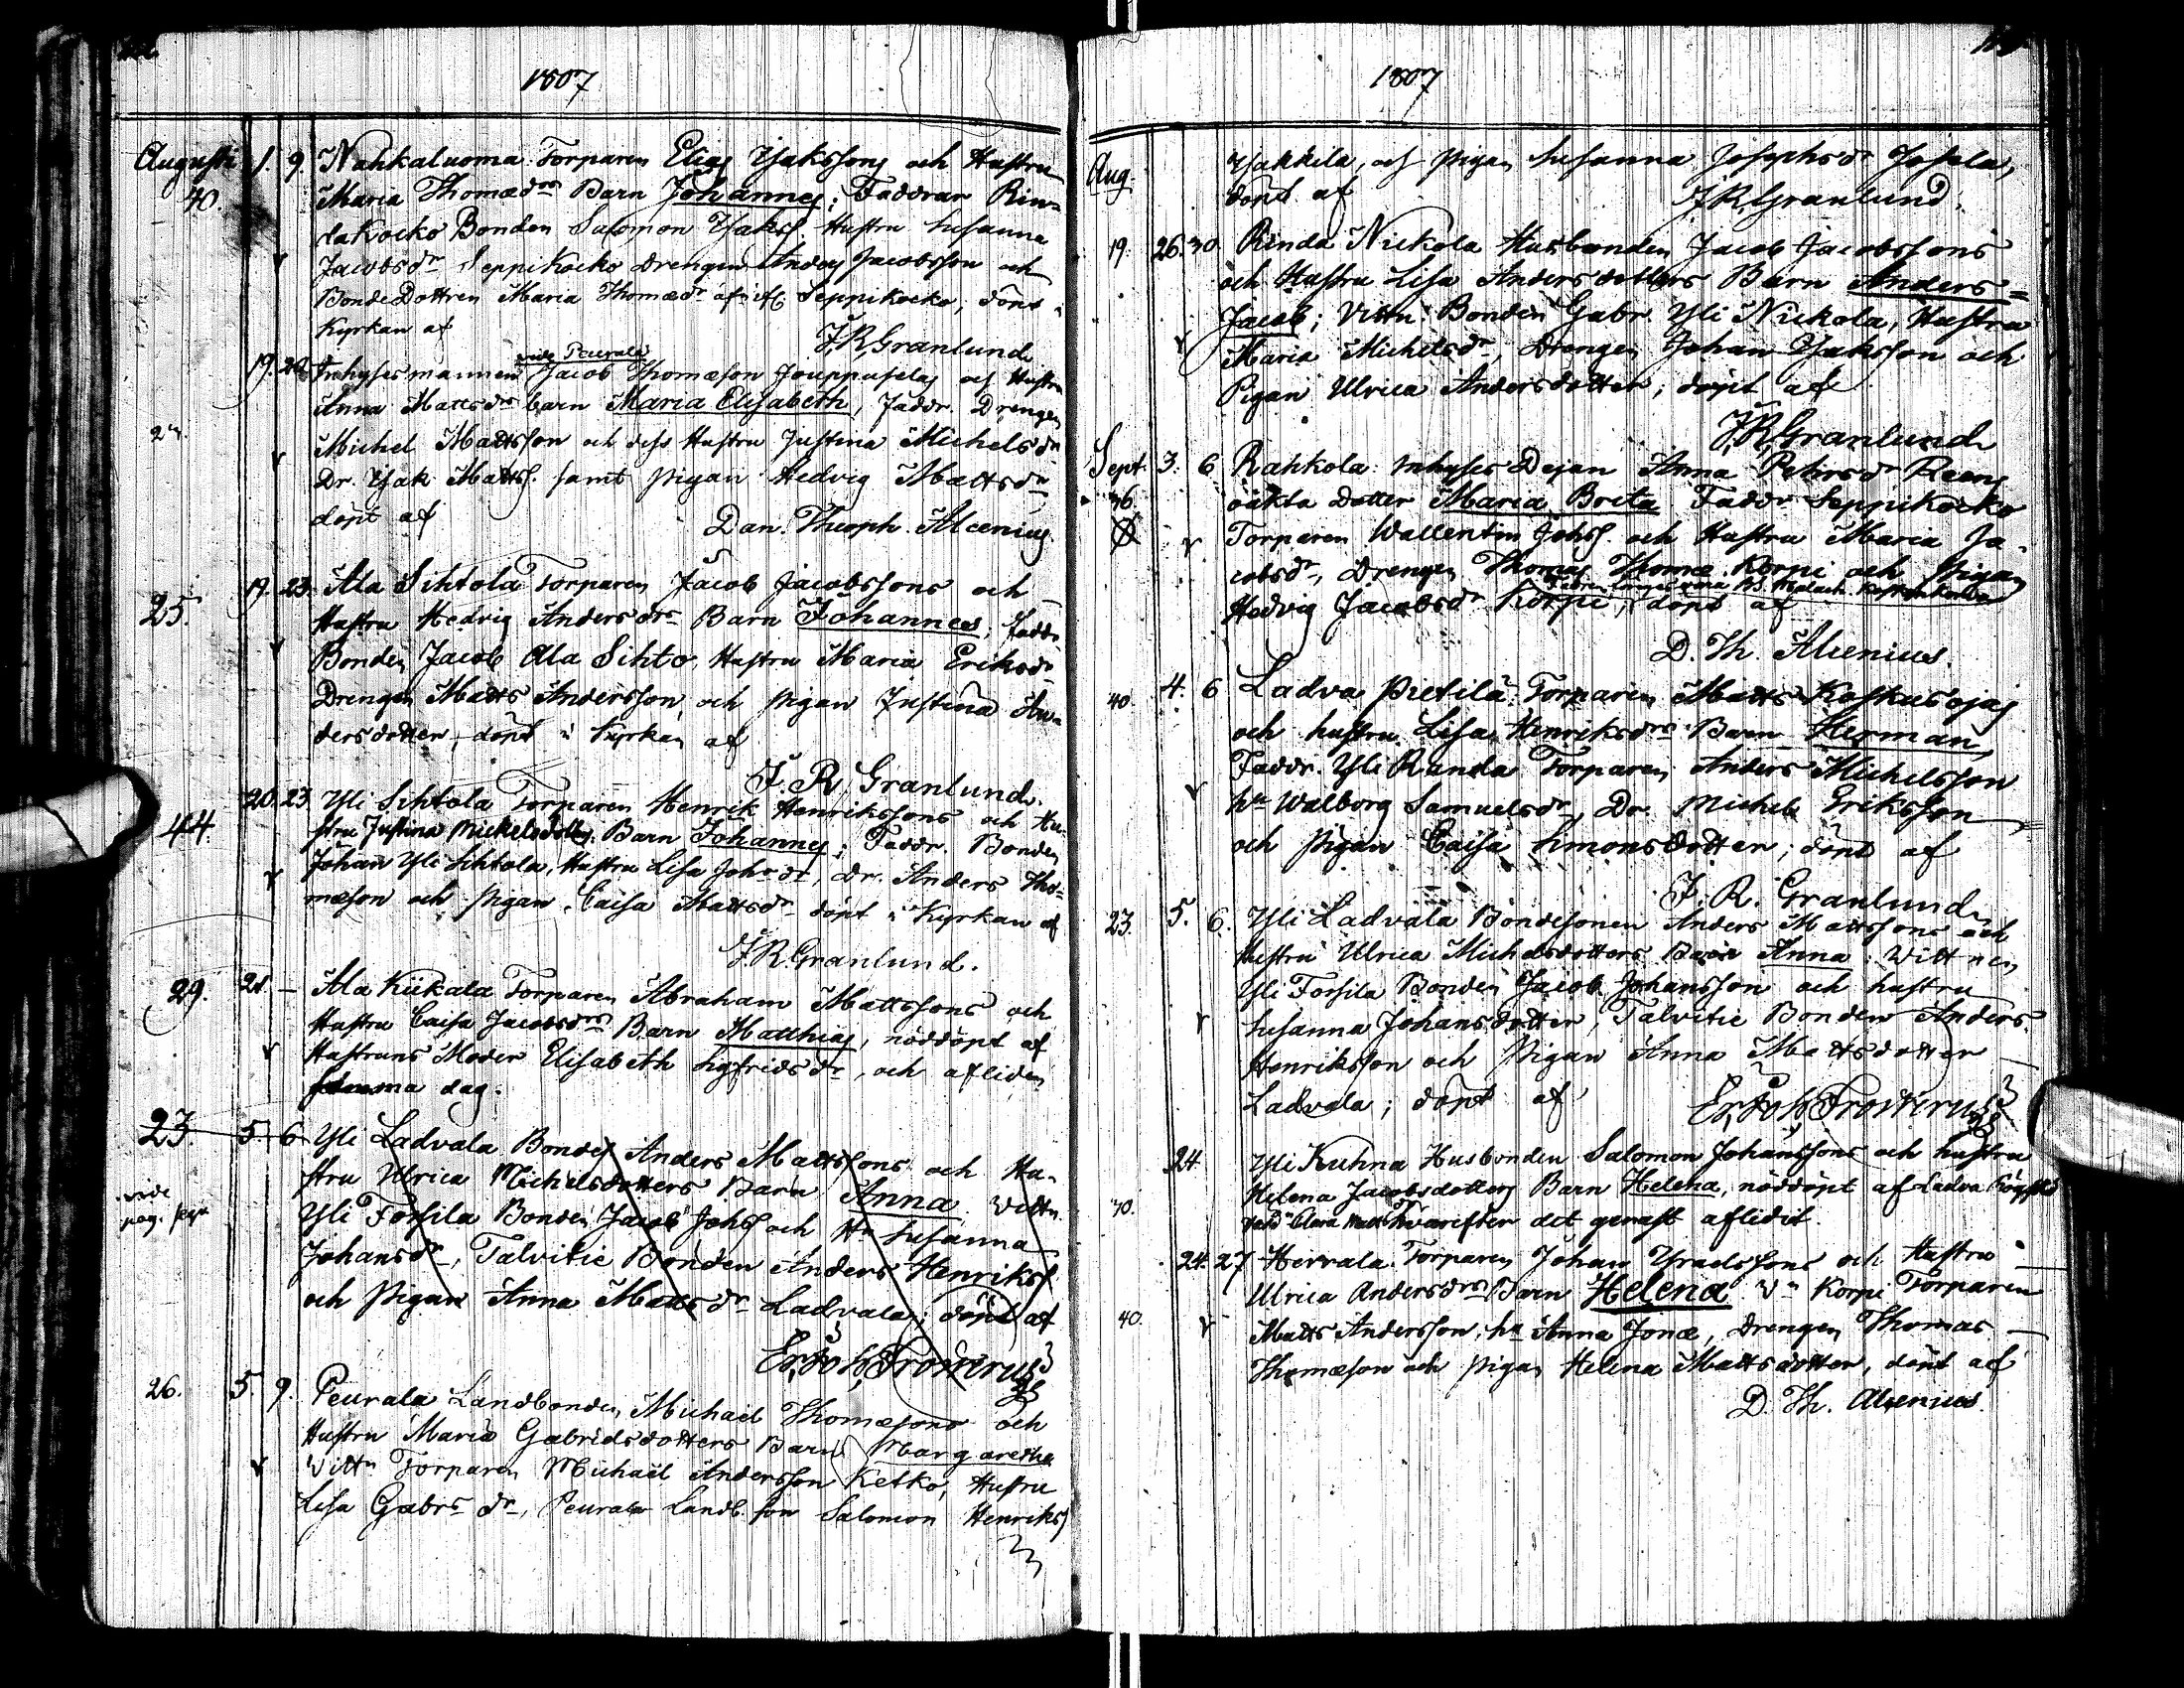 1807
Augusti 1. 9. Nahkaluoma Torparen Elias Ysakssons och Hustru
40. Maria Thomædrs Barn Johannes; Faddrar Rin-
dakocko Bonden Salomon Ysakss. Hustru Susanna
Jacobsdr Seppikocko Drengen Anders Jacobsson och
BondeDottren Maria Thomædr Seppikocko, döpt i
Kyrkan af J. R. Granlund
vide Peurala
19. Inhysesmannen Jacob Thomæson Jouppuselas och Hustru
Anna Mattsdrs barn Maria Elisabeth, Faddr. Drengen
27. Michel Mattsson och dess Hustru Justina Michelsdr
Dr. Ysak Mattss. samt pigan Hedvig Mattsdr
döpt af Dan. Theoph. Alcenius
19. 23. Ala Sihtola Torparen Jacob Jacobssons och
25. Hustru Hedvig Andersdrs Barn Johannes, Faddr
Bonden Jacob Ala Sihto, Hustru Maria Eriksdr
Drengen Matts Andersson och pigan Justina An-
dersdotter, döpt i Kyrkan af
J. R. Granlund.
20. 23. Yli Sihtola Torparen Henrik Henrikssons och Hu-
44. stru Justina Mickelsdotters Barn Johannes; Faddr. Bonden
Johan Yli Sihtola, Hustru Lisa Johsdr, Dr. Anders Tho-
mæson och pigan Caisa Mattsdr döpt i Kyrkan af
J. R. Granlund.
29. 21. — Ala Kiikala Torparen Abraham Mattssons och
Hustru Caisa Jacobsdrs Barn Matthias, nöddöpt af
Hustruns Moder Elisabeth Sigfridsdr, och afliden
samma dag.
23. 5. 6 Yli Ladvala Bonden Anders Mattssons och Hu-
stru Ulrica Michelsdotters Barn Anna Vittn.
vide pag. Yli Forsila Bonden Jacob Johss och Hu Susanna
Johansdr, Talvitie Bonden Anders Henrikss.
och pigan Anna Mattsdr Ladvala; döpt af
Er. Joh. Frosterus
26. 5. 9. Peurala Landbonden Michaël Thomæsons och
Hustru Maria Gabrielsdotters Barn Margaretha
Vittn Torparen Michaël Andersson Ketko, Hustru
Lisa Gabrs dr, Peurala Landb. son Salomon Henrikss
1807
Aug. Ysakkila, och pigan Susanna Josephsdr Josela,
döpt af J. R. Granlund.
19. 26. 30. Rinda Nickola Husbonden Jacob Jacobssons
och Hustru Lisa Andersdotters Barn Anders=
Jacob; Vittn. Bonden Gabr. Yli Nickola, Hustru
Maria Michelsdr, Drengen Johan Ysaksson och
Pigan Ulrica Andersdotter; döpt af
J. R. Granlund
Sept. 3. 6 Rahkola Inhyses Dejan Anna Petersdr
36. oäkta Dotter Maria Brita Faddr Seppikocko
Torparen Wallentin Johss. och Hustru Maria Ja-
cobsdr, Drengen Thomas Thomæ Korpi och pigan
Hedvig Jacobsdr Korpi, döpt af
D. Th. Alcenius.
40. 4. 6 Ladva Pietilä Torparen Matts Koskusojas
och hustru Lisa Henriksdrs Barn Herman,
Faddr. Yli Randa Torparen Anders Michelsson
hu Walborg Samuelsdr, Dr. Michel Eriksson
och pigan Caisa Simonsdotter; döpt af
J. R. Granlund
23. 5. 6. Yli Ladvala Bondesonen Anders Mattssons och
Hustru Ulrica Michelsdotters Barn Anna. Vittnen
Yli Forsila Bonden Jacob Johansson och hustru
Susanna Johansdotter, Talvitie Bonden Anders
Henriksson och pigan Anna Mattsdotter
Ladvala; döpt af Er. Joh. Frosterus
24. Yli Kuhna Husbonden Salomon Johanssons och hustru
30. Helena Jacobsdotters Barn Helena, nöddöpt af Ladva
Clara hvarefter det genast aflidit.
24. 27 Herrala Torparen Johan Ysraelssons och Hustru
Ulrica Andersdrs Barn Helena Vn Korpi Torparen
40. Matts Andersson, hu Anna Jonæ, Drengen Thomas
Thomæson och pigan Helena Mattsdotter, döpt af
D. Th. Alcenius